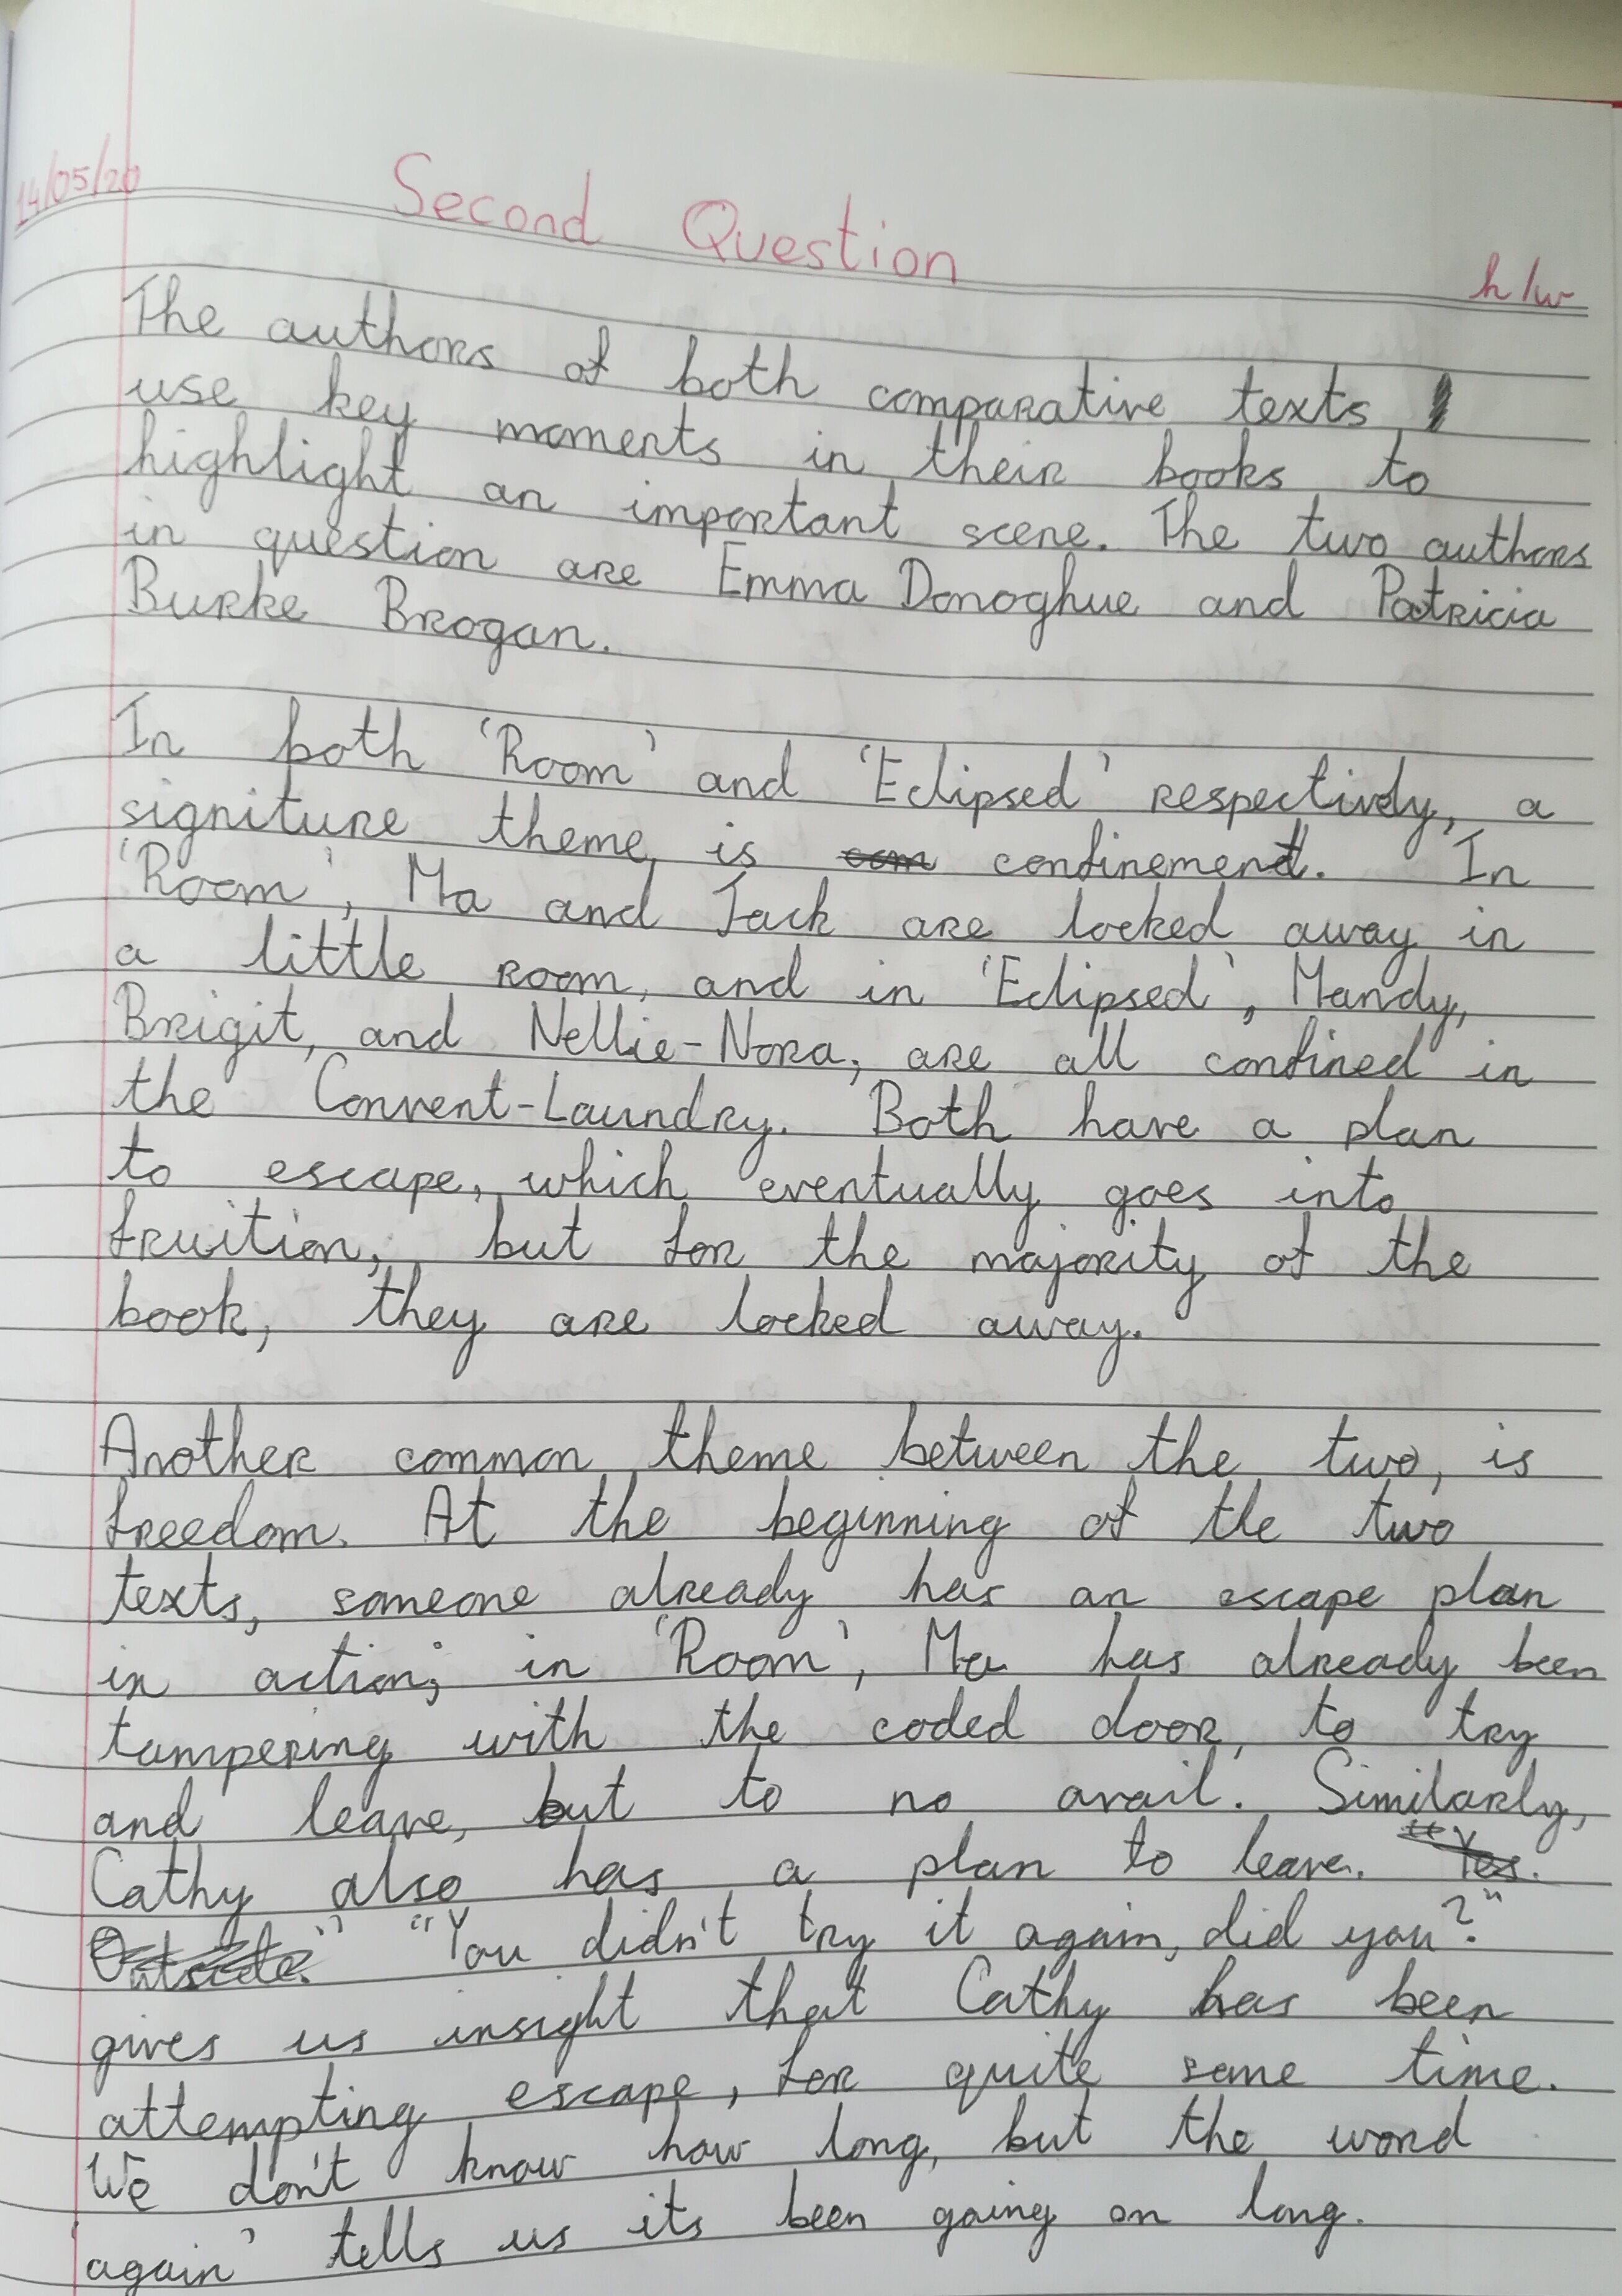 14/05/20
Second Question
h/w
The authors of both comparative texts
use key moments in their books to
highlight an important scene. The two authors
in question are Emma Donoghue and Patricia
Burke Brogan.
In both 'Room' and 'Eclipsed' respectively, a
signiture theme, is com confinement. In
'Room', Ma and Jack are locked away in
a little room, and in 'Eclipsed', Mandy,
Brigit, and Nellie-Nora, are all confined in
the Convent-Laundry. Both have a plan
to escape, which eventually goes into
fruition, but for the majority of the
book, they are locked away.
Another common theme between the two, is
freedom. At the beginning of the two
texts, someone already has an escape plan
in action; in 'Room', Ma has already been
tampering with the coded door, to try
and leave, but to no avail. Similarly,
Cathy also has a plan to leave. "Yes.
Outside." "You didn't try it again, did you?"
gives us insight that Cathy has been
attempting escape, for quite some time.
We don't know how long, but the word
'again' tells us its been going on long.